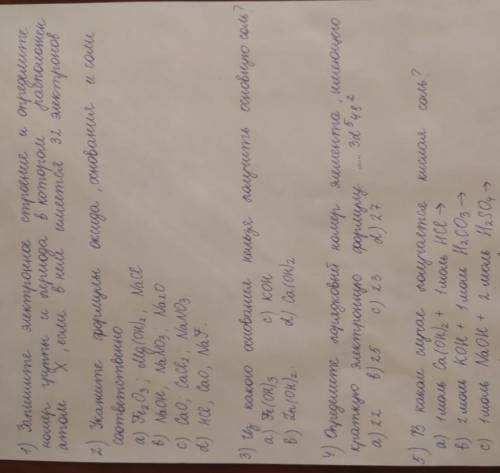 1) Напишите электронное строение и определите
номер группы и периода в котором расположен
атом X, если в нем имеется 32 электронов
2) Укажите формулы оксида, основания и соли
соответственно
a) Fe₂O₃; Mg(OH)₂, NaCl
b) NaOH, NaNO₃, Na₂O
c) CaO, CaCl₂, NaNO₃
d) HCl, CaO, NaF.
3) Из какого основания нельзя получить основную соль?
a) Fe(OH)₃ c) KOH
b) Zn(OH)₂ d) Ca(OH)₂
4) Определите порядковый номер элемента, имеющего
краткую электронную формулу ....3d⁵4s²
a) 22 b) 25 c) 23 d) 27
5) В каком случае получается кислая соль?
a) 1 моль Ca(OH)₂ + 1 моль HCl →
b) 2 моль KOH + 1 моль H₂CO₃ →
c) 1 моль NaOH + 2 моль H₂SO₄ →